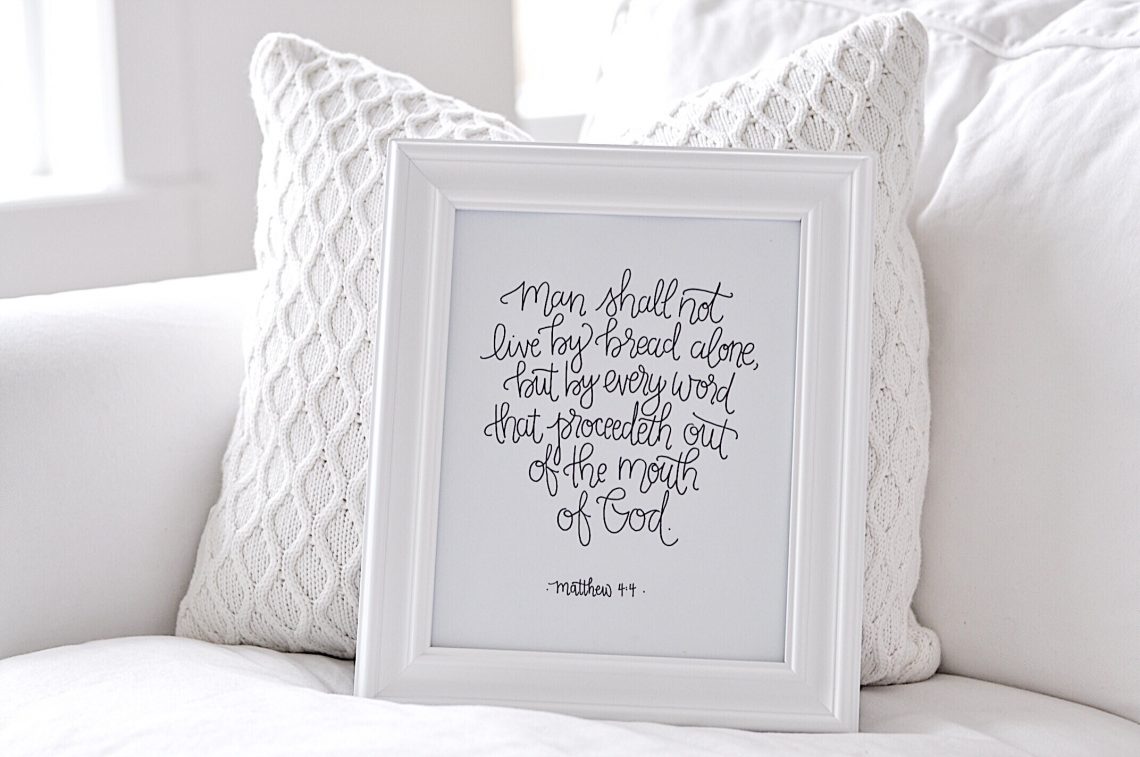 Man shall not
live by bread alone,
but by every word
that proceedeth out
of the mouth
of God.
· matthew 4:4 ·